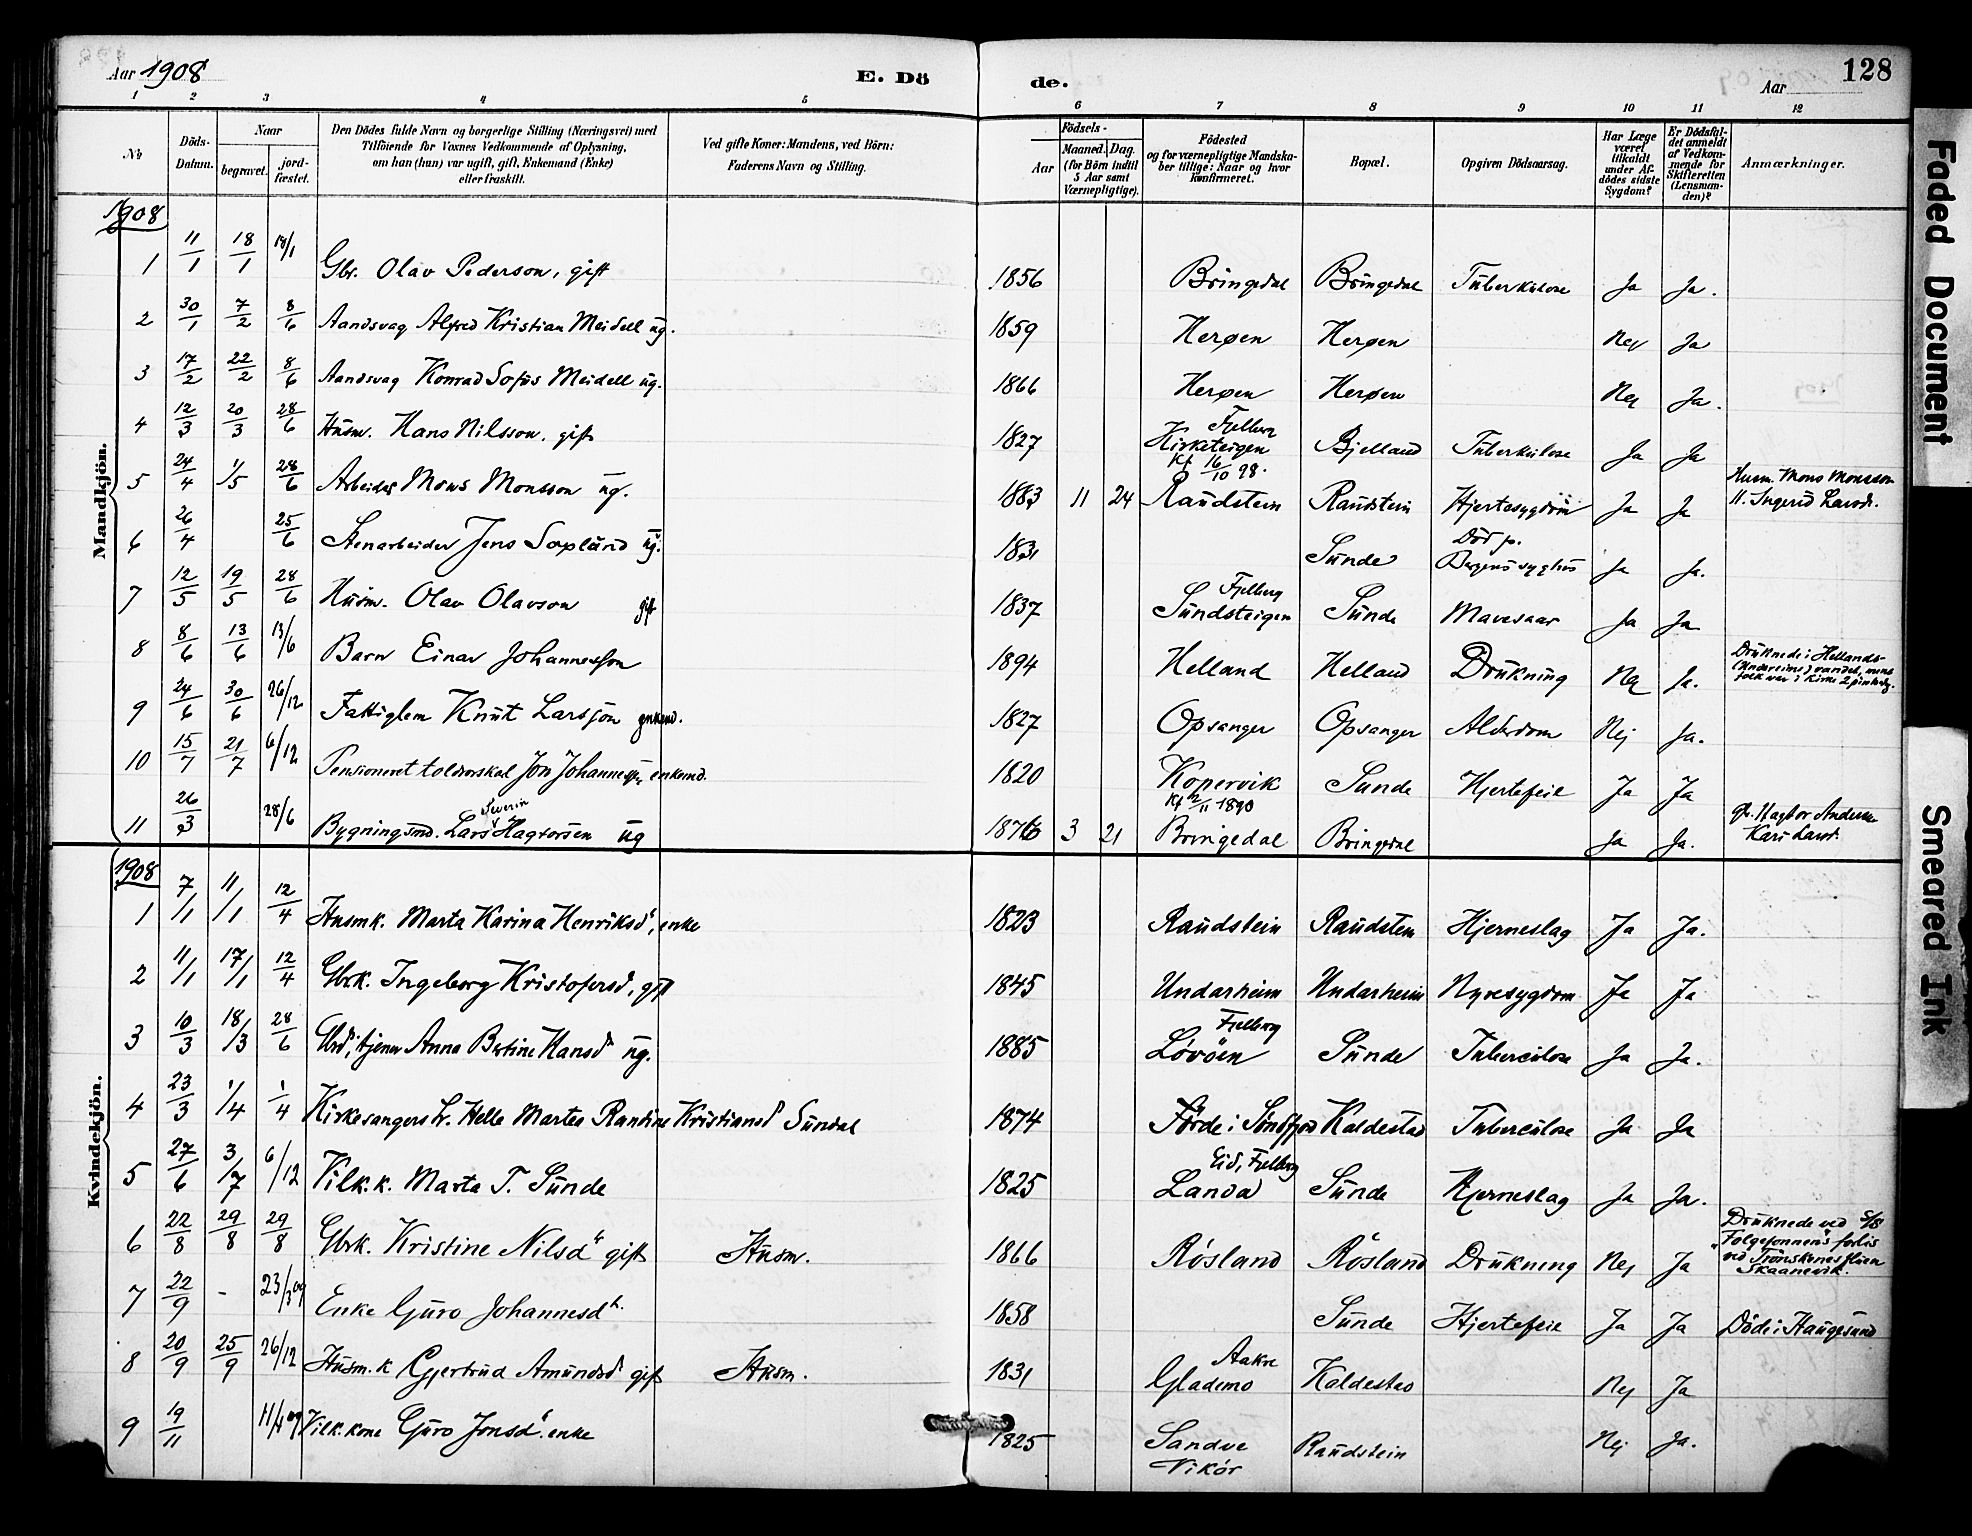 Aar 1908
E. Dö
de.
Aar
128
1 2 3 4 5 6 7 8 9 10 11 12
No
Döds-Datum.
Naar
begravet.
jord-fæstet.
Den Dödes fulde Navn og borgerlige Stilling (Næringsvei) med
Tilföiende for Voxnes Vedkommende af Oplysning,
om han (hun) var ugift, gift, Enkemand (Enke)
eller fraskilt.
Ved gifte Koner: Mandens, ved Börn:
Faderens Navn og Stilling.
Födsels-
Aar
Maaned. Dag.
(for Börn indtil
5 Aar samt
Værnepligtige).
Födested
og for værnepligtige Mandska-
ber tillige: Naar og hvor
konfirmeret.
Bopæl.
Opgiven Dödsaarsag.
Har Læge
været
tilkaldt
under Af-
dödes sidste
Sygdom?
Er Dödsfal-
det anmeldt
af Vedkom-
mende for
Skifteretten
(Lensman-
den)?
Anmærkninger.
Mandkjön.
1908
1 11/1 18/1 18/1 Gbr. Olav Pederson, gift 1856 Bringedal Bringedal Tuberkulose Ja Ja.
2 30/1 7/2 8/6 Aandsvag Alfred Kristian Meidell ug. 1859 Herøen Herøen Nej Ja
3 17/2 22/2 8/6 Aandsvag Konrad Sofus Meidell ug. 1866 Herøen Herøen Nej Ja.
4 12/3 20/3 28/6 Husm. Hans Nilsson, gift 1827 Fjelberg Kirketeigen Bjelland Tuberkulose Ja Ja
5 24/4 1/5 28/6 Arbeider Mons Monsson ug. 1883 11 24 Kf 16/10 98. Raudstein Raudstein Hjertesygdom Ja Ja Husm. Mons Monsson
Ingerid Larsd.
6 26/4 25/6 Stenarbeider Jens ug. 1831 Sunde Död p.
Bergens syghus Ja Ja.
7 12/5 19/5 28/6 Husm. Olav Olavson gift 1837 Fjelberg Sundsteigen Sunde Mavesaar Ja Ja
8 8/6 13/6 13/6 Barn Einar Johannesson 1894 Helland Helland Drukning Nej Ja. Druknede i Hellands-
(Undreims) vandet, mens
folk var i kirke 2 pintsedg.
9 24/6 30/6 26/12 Fattiglem Knut Larsson enkem. 1827 Opsanger Opsanger Alderdom Nej Ja.
10 15/7 21/7 6/12 Pensioneret toldrorskal Jon Johannessen enkemd. 1820 Kopervik Sunde Hjertefeil Ja Ja
11 26/3 28/6 Bygningsmd. Lars Severin Hagtorsen ug 1876 3 21 Kf 1890 Bringedal Bringedal Ja Ja. gbr. Hagtor Anderson
Kari Larsd.
Kvindekjön.
1908
1 7/1 11/1 12/4 Husmk. Marta Karina Henriksd, enke 1823 Raudstein Raudstein Hjerneslag Ja Ja.
2 11/1 17/1 12/4 Gbrk. Ingeborg Kristofersd, gift 1845 Undarheim Undarheim Nyresygdom Ja Ja
3 10/3 18/3 28/6 Gbrd, tjener Anna Bertine Hansd ug. 1885 Fjelberg Lövöen Sunde Tuberculose Ja Ja.
4 23/3 1/4 1/4 Kirkesangers h. Helle Martea Rantine Kristiansd Sundal 1874 Förde i Söndfjord Kaldestad Tuberculose Ja Ja
5 27/6 3/7 6/12 Vilk.k. Marta T. Sunde 1825 Eid, Fjelberg Landa Sunde Hjerneslag Ja Ja.
6 22/8 29/8 29/8 Gbrk. Kristine Nilsd gift Husm. 1866 Rösland Rösland Drukning Nej Ja Druknede ved S/S
"Folgefonnen"s forlis
Skaanevik.
7 22/9 - 23/3 09 Enke Guro Johannesd. 1858 Sunde Hjertefeil Ja Ja Döde i Haugesund
8 20/9 25/9 26/12 Husm.k Gjertrud Amundsd gift Husm. 1831 Aakre Glademo Kaldestad Nej Ja
9 19/11 11/4 09 Vilk.kone Guro Jonsd. enke 1825 Sandve
Vikör Raudstein Nej Ja.
Faded Document
Smeared Ink